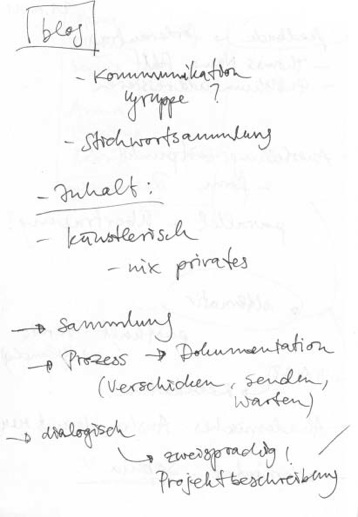 blog
- Kommunikation
gruppe ?
- Stichwortsammlung
- Inhalt :
- künstlerisch
- nix privates
→ Sammlung
→ Prozess → Dokumentation
(verschicken, senden,
warten)
→ dialogisch
↳ zweisprachig !
Projektbeschreibung